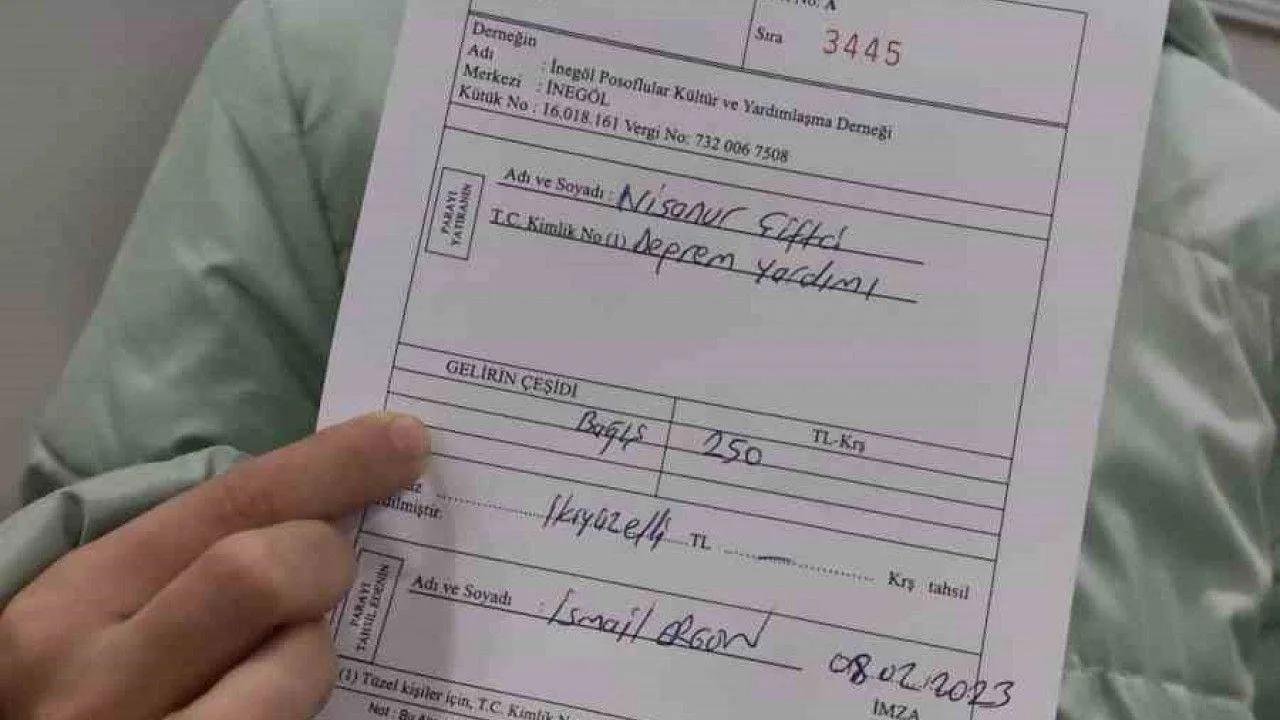 No: A
Sıra 3445
Derneğin
Adı : İnegöl Posoflular Kültür ve Yardımlaşma Derneği
Merkezi : İNEGÖL
Kütük No : 16.018.161 Vergi No: 732 006 7508
PARAYI
YATIRANIN
Adı ve Soyadı : Nisanur Çiftci
T.C. Kimlik No (1) Deprem Yardımı
GELİRİN ÇEŞİDİ
TL-Krş
Bağış 250
İkiyüzelli TL Krş tahsil
edilmiştir.
PARAYI
TAHSİL EDENİN
Adı ve Soyadı : İsmail ERGON
08.02.2023
İMZA
(1) Tüzel kişiler için, T.C. Kimlik
Not : Bu